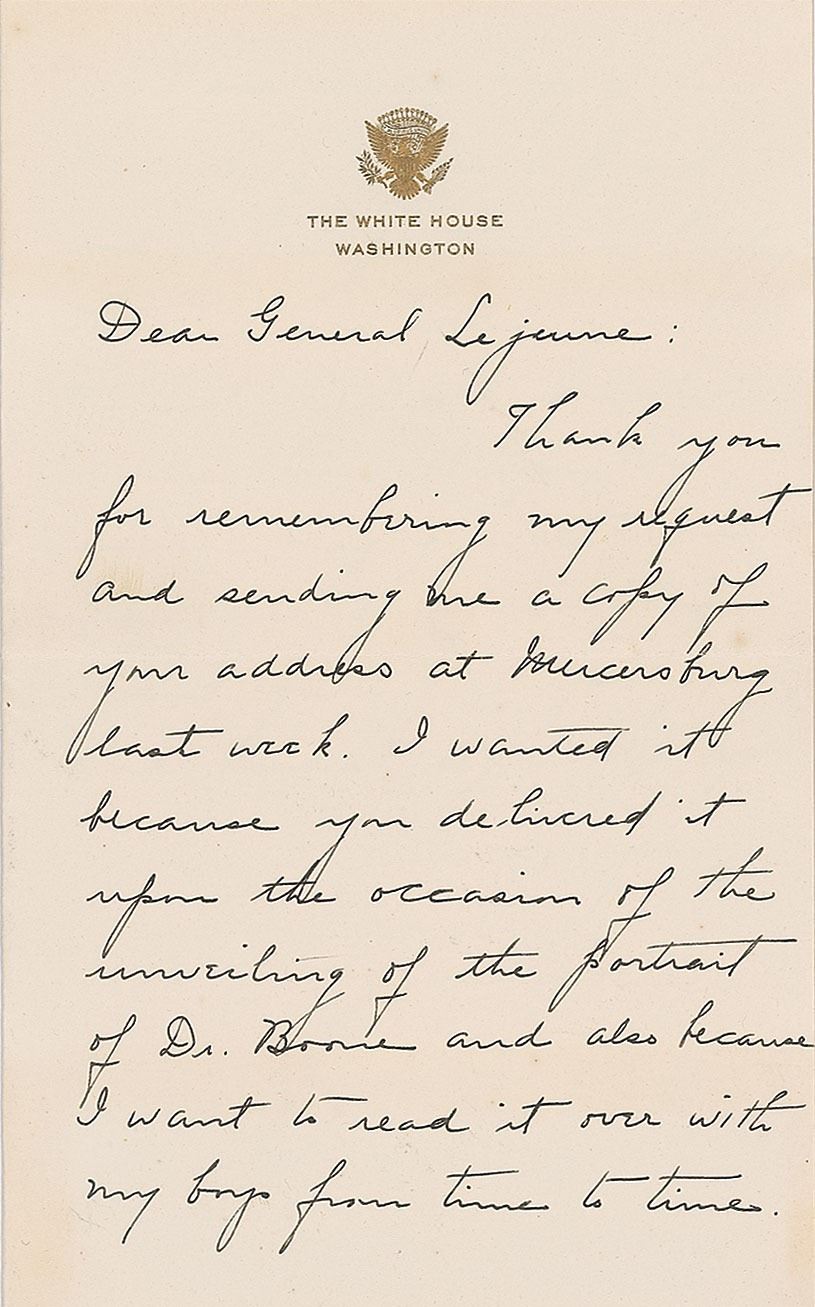 THE WHITE HOUSE
WASHINGTON
Dear General Lejeune:
Thank you
for remembering my request
and sending me a copy of
your address at Mercersburg
last week. I wanted it
because you delivered it
upon the occasion of the
unveiling of the portrait
of Dr. Boone and also because
I want to read it over with
my boys from time to time.